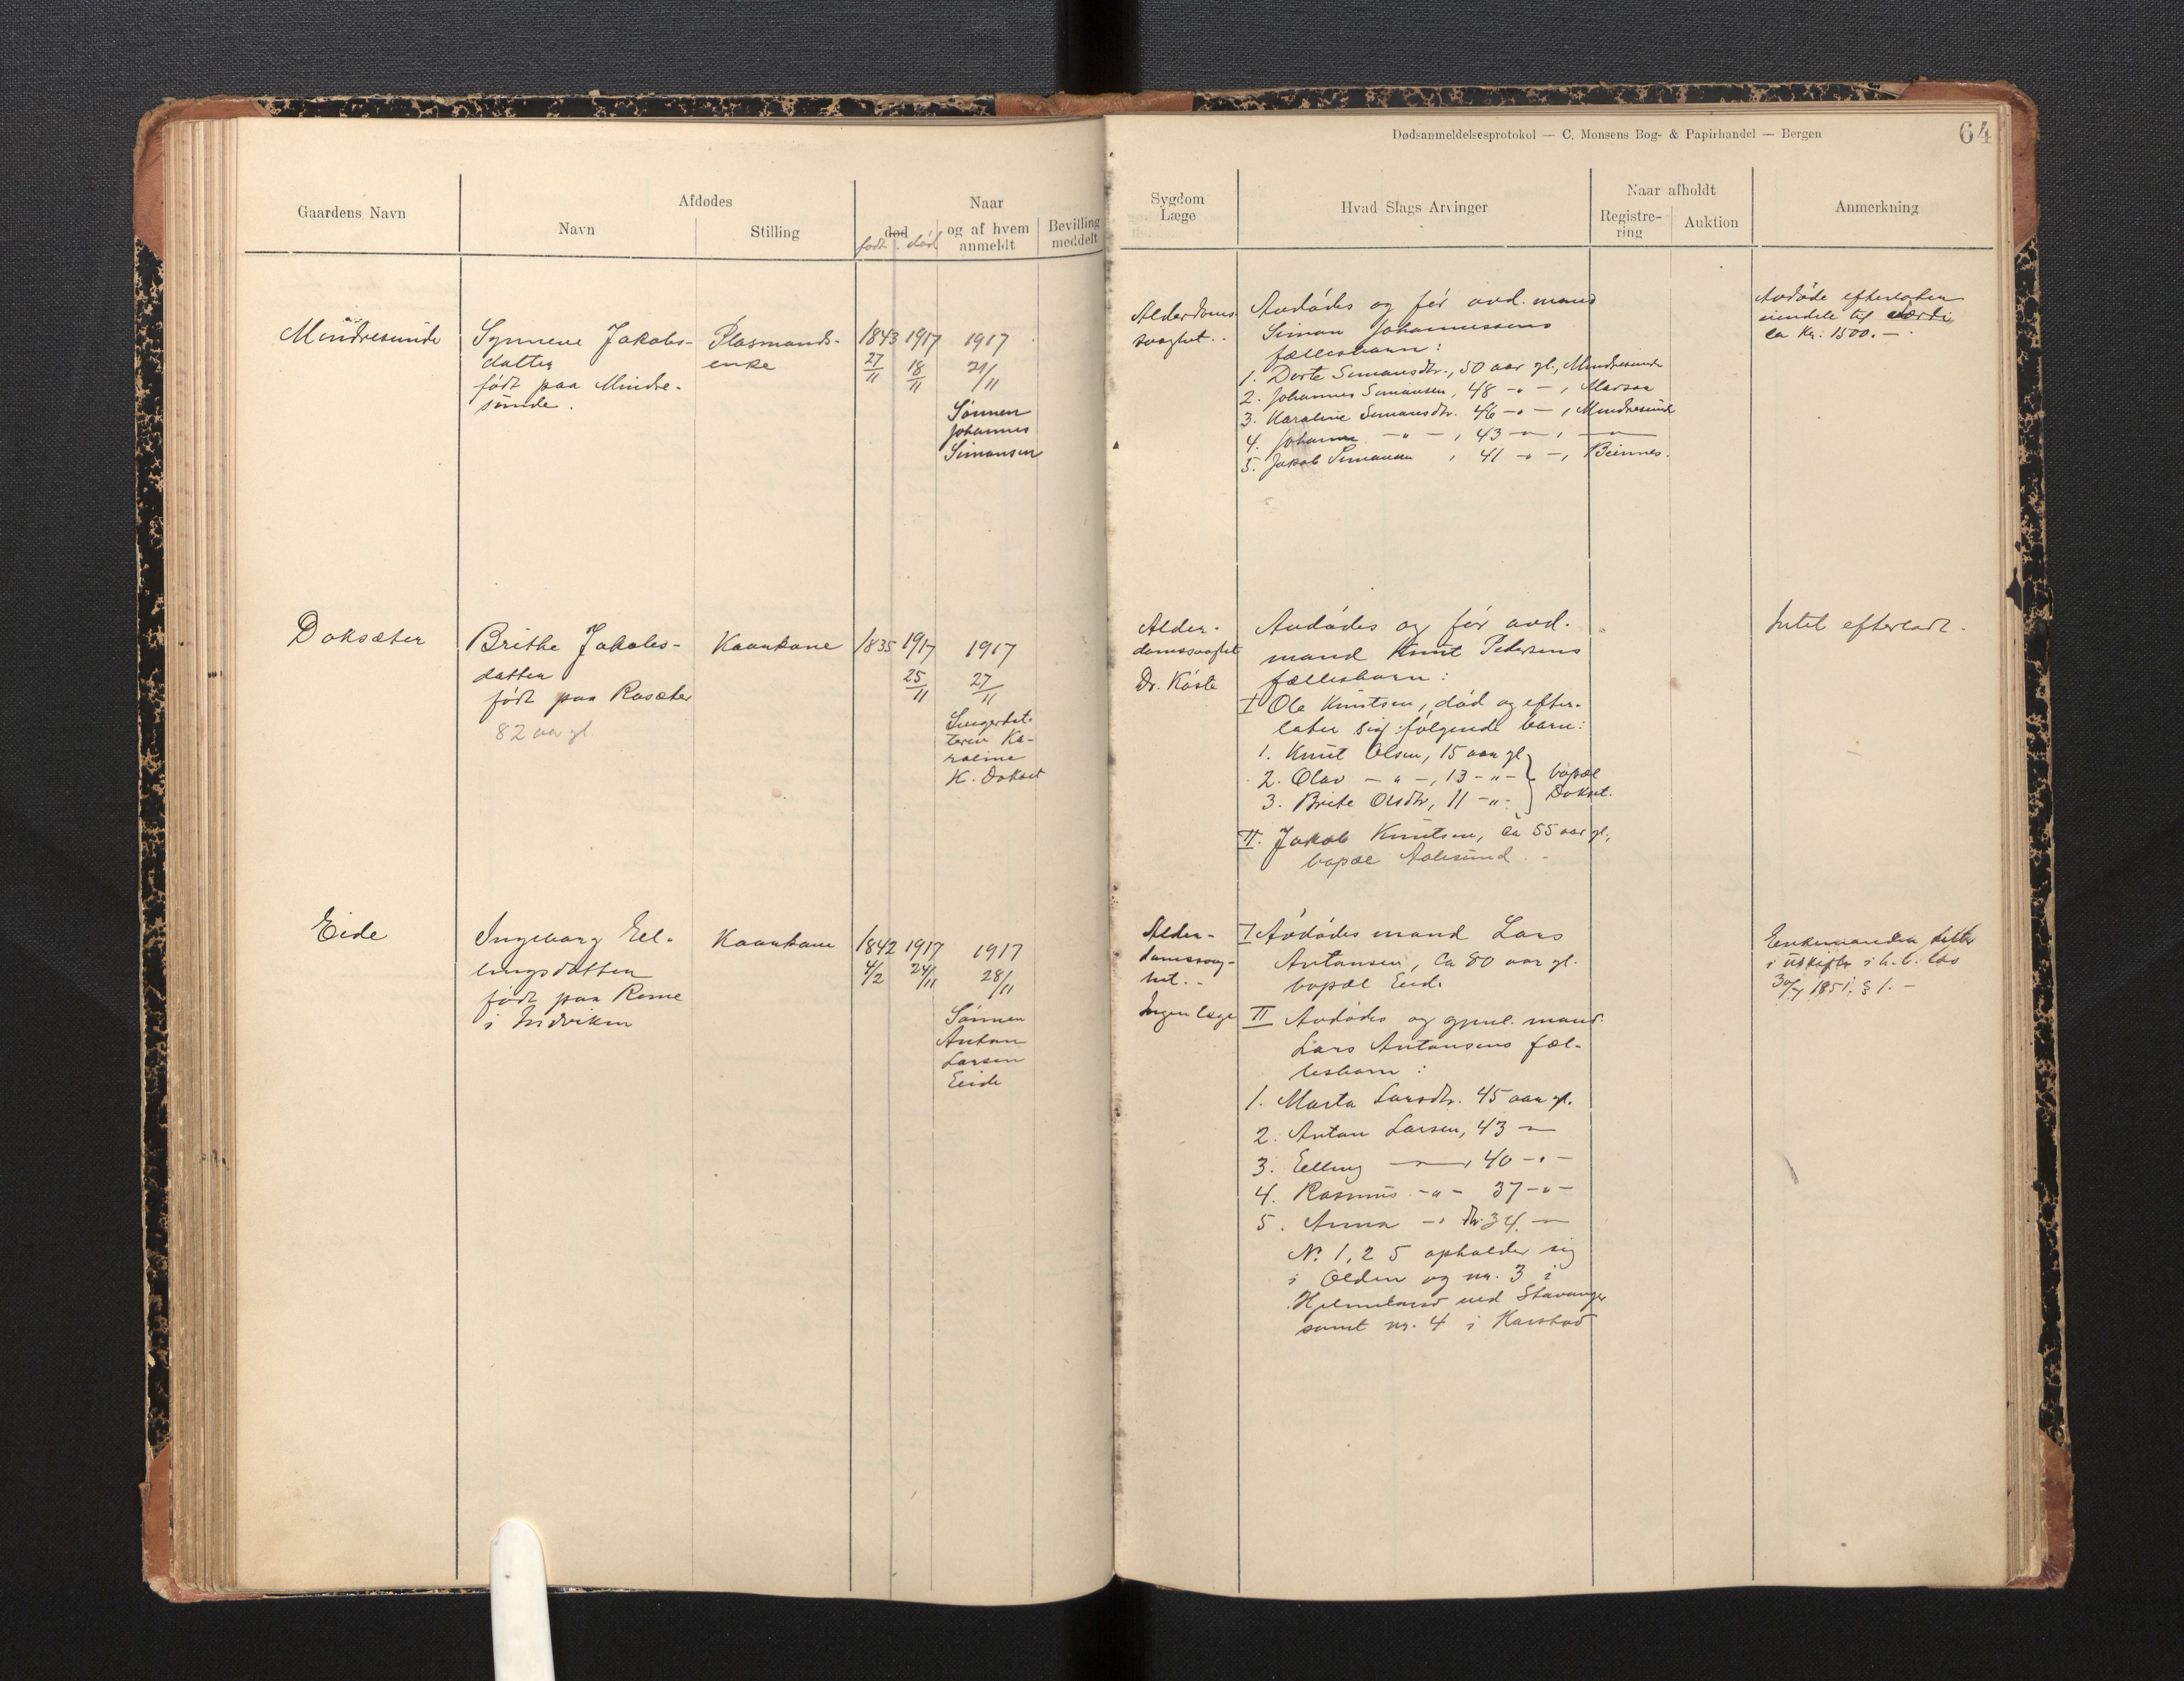 Dødsanmeldelsesprotokol — C. Monsens Bog- & Papirhandel — Bergen
64
Gaardens Navn
Afdødes
Navn
Stilling
Naar
død
født død
og af hvem
anmeldt
Bevilling
meddelt
Sygdom
Læge
Hvad Slags Arvinger
Naar afholdt
Registre-
ring
Auktion
Anmerkning
Mindresunde
Synneve Jakobs-
datter
født paa Mindre-
sunde.
Plasmands-
enke
1843 1917 1917
27/11 18/11 21/11
Sønnen
Johannes
Simonsen
Alderdoms-
svaghet.
Avdødes og før avd. mand
Simon Johannessens
fællesbarn:
1. Dorte Simonsdtr., 50 aar gl., Mindresunde
2. Johannes Simonsen, 48 -"-,
3. Karoline Simonsdtr. 46 -"-, Mindresunde
4. Johanne -"-, 43 -"-, -"-
5. Jakob Simonsen, 41 -"-,
Avdøde efterlater
eiendele til værdi
ca kr. 1500.-
Doksæter
Brithe Jakobs-
datter
født paa Rosæter
82 aar gl
Kaarkone
1835 1917 1917
25/11 27/11
K. Dokset
Alder-
domssvaghet
Dr. Kåste
Avdødes og før avd.
mand Knut Pedersens
fællesbarn:
I Ole Knutsen, død og efter-
later sig følgende barn:
1. Knut Olsen, 15 aar gl
2. Olav -"-, 13 -"- bopæl
3. Brite Olsdtr, 11 -"- Dokset.
II. Jakob Knutsen, ca 55 aar gl,
bopæl Aalesund.
Intet efterladt.
Eide
Ingeborg Ell-
ingsdatter
født paa Rome
i Indviken
Kaarkone
1842 1917 1917
4/2 24/11 28/11
Sønnen
Anton
Larsen
Eide
Alder-
domssvag-
het.
Ingen læge
I Avdødes mand Lars
Antonsen, ca 80 aar gl.
bopæl Eide
II Avdødes og gjenl. mand
Lars Antonsens fæl-
lesbarn:
1. Marta Larsdtr. 45 aar gl.
2. Anton Larsen, 43 -"-
3. Elling -"-, 40 -"-
4. Rasmus -"- 37 -"-
5. Anna -"- dtr. 34 -"-
Nr. 1, 2 5 opholder sig
i Olden og nr. 3 i
ved Stavanger
samt nr. 4 i Harstad
Enkemanden sitter
i uskiftet i h. t. lov
30/7 1851, § 1. -